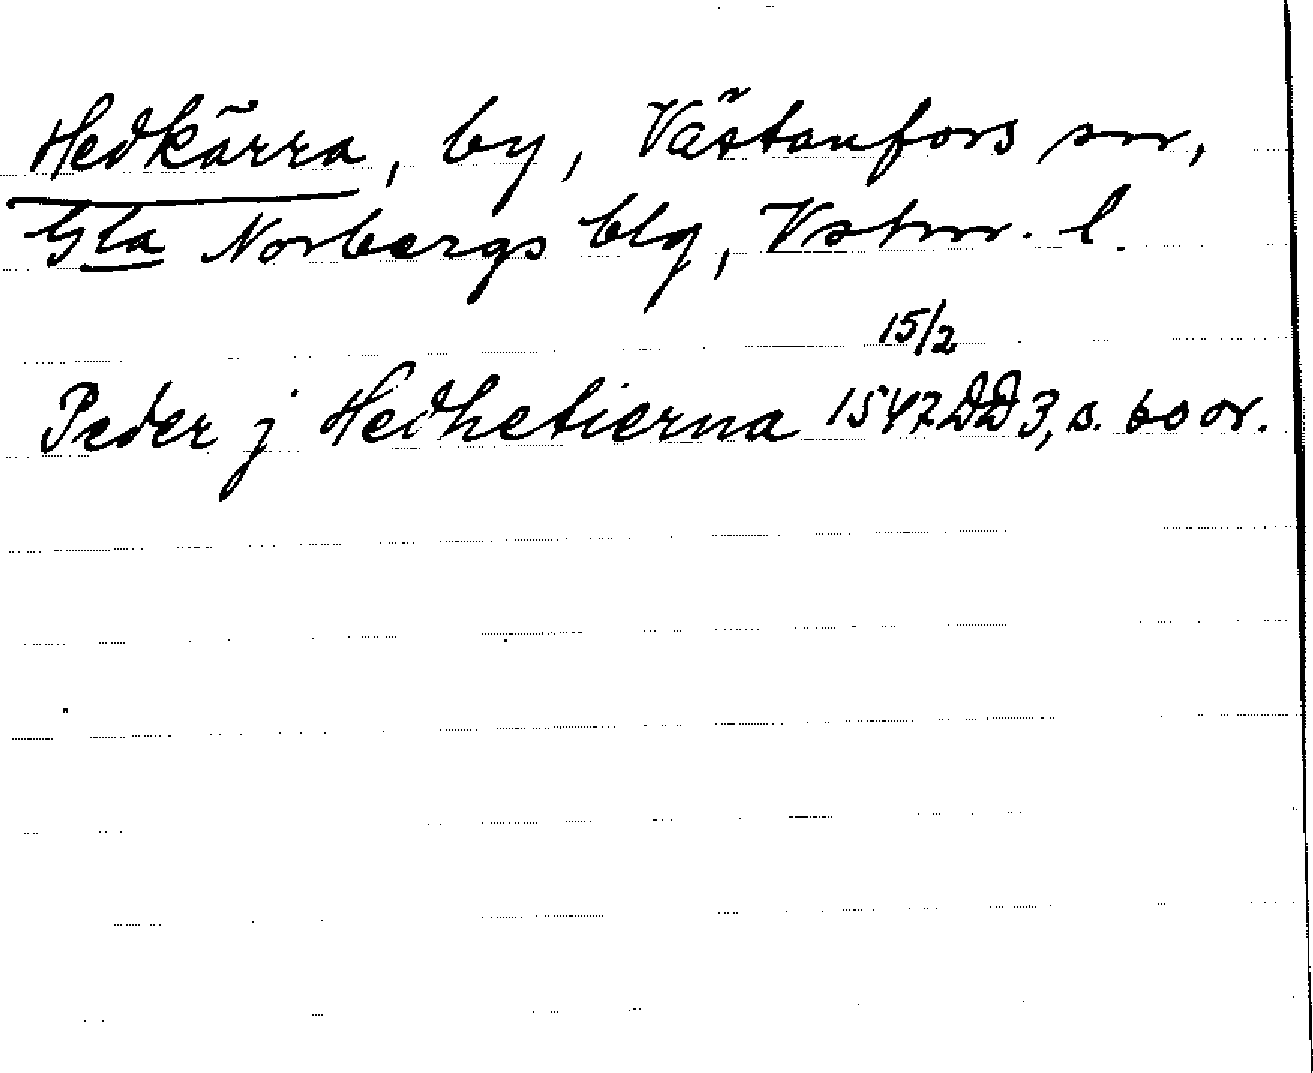 Hedkärra, by, Västanfors sn,
Gla Norbergs blg, Vstm. l.
15/2
Peder j Hedhetierna 1547 DD3, s. 60 or.